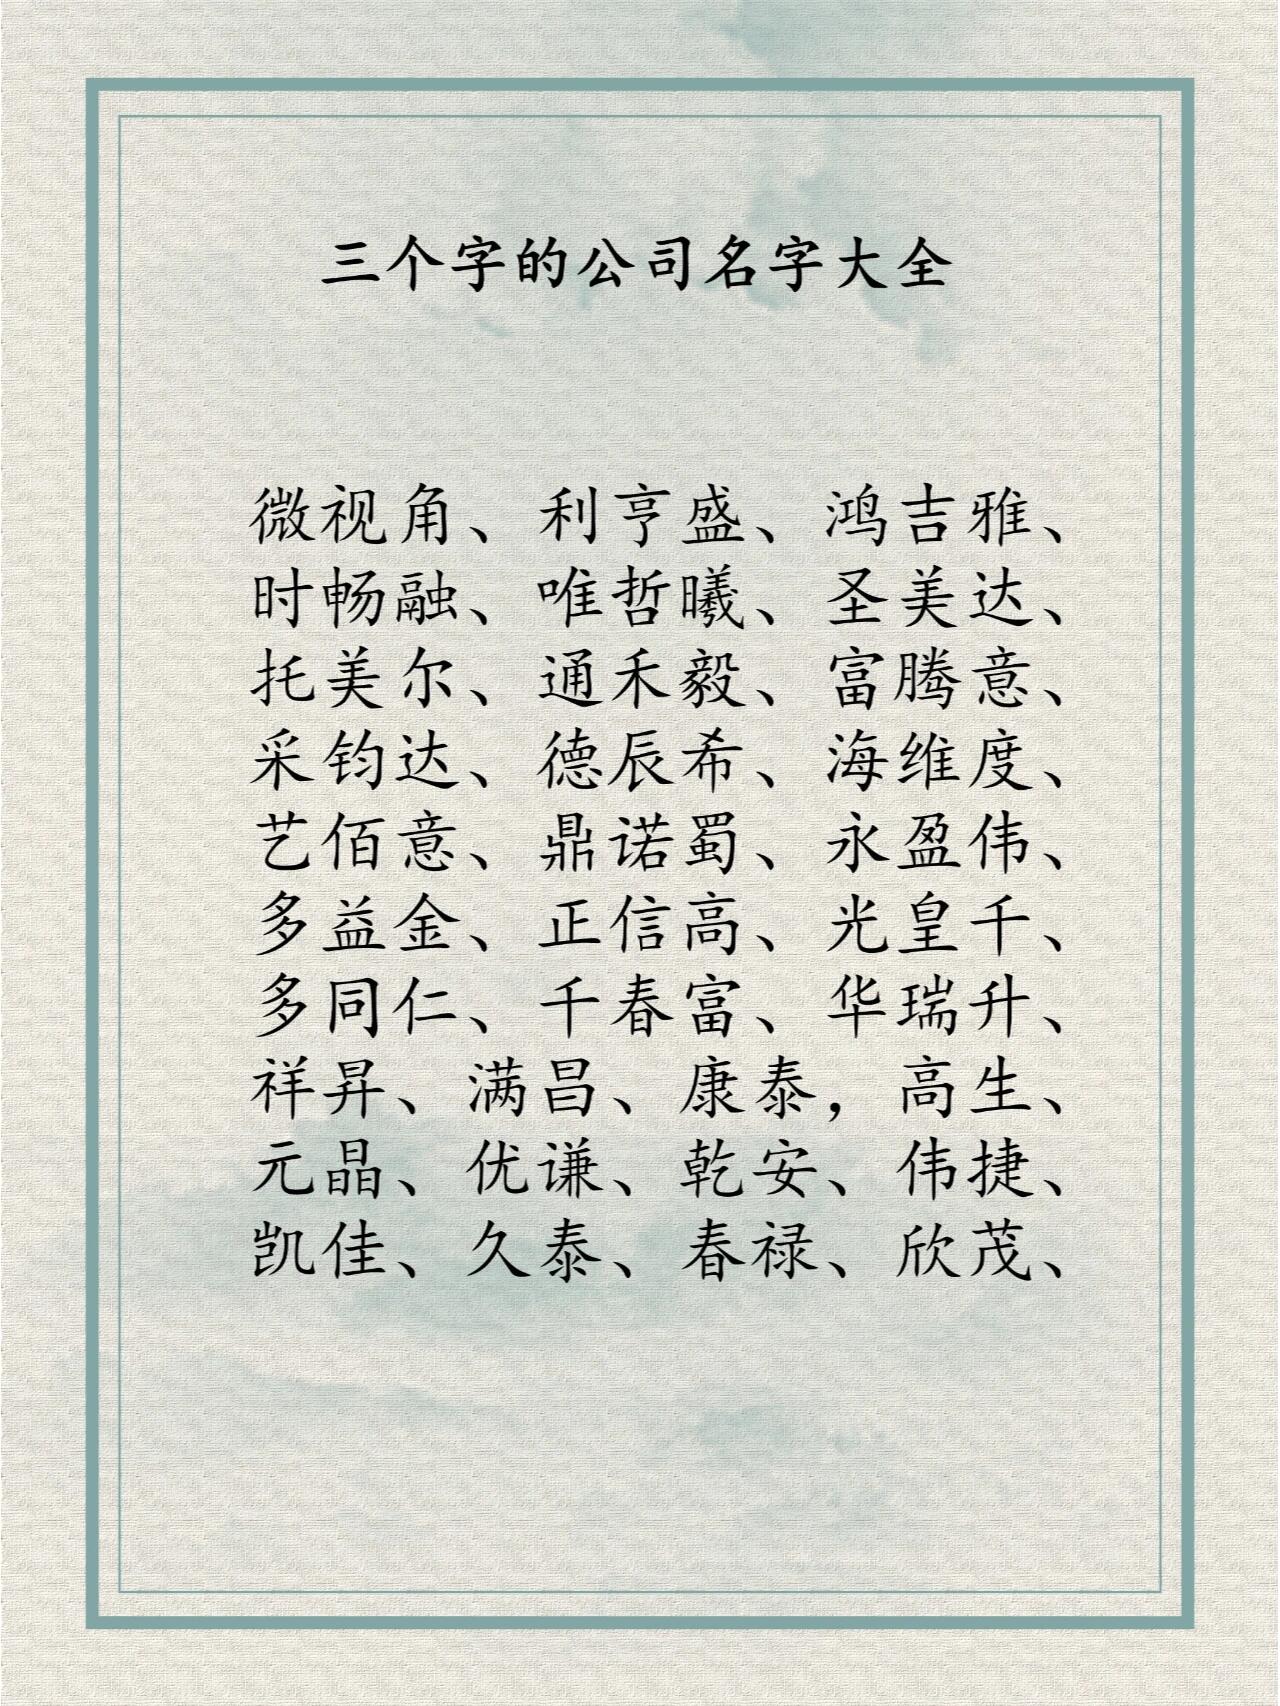 三个字的公司名字大全
微视角、利亨盛、鸿吉雅、
时畅融、唯哲曦、圣美达、
托美尔、通禾毅、富腾意、
采钧达、德辰希、海维度、
艺佰意、鼎诺蜀、永盈伟、
多益金、正信高、光皇千、
多同仁、千春富、华瑞升、
祥昇、满昌、康泰，高生、
元晶、优谦、乾安、伟捷、
凯佳、久泰、春禄、欣茂、